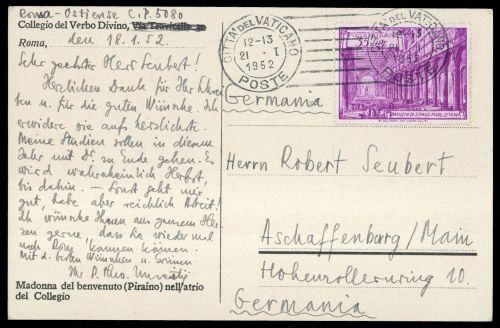 Roma-Ostiense C.P. 5080
Collegio del Verbo Divino, Via Travicella
Roma, den 18.1.52.
Sehr geehrter Herr Seubert!
Herzlichen Dank für Ihr Schrei-
ben u. für die guten Wünsche. Ich
erwidere sie aufs herzlichste.
Meine Studien sollen in diesem
Jahr mit Dr. zu Ende gehen. Es
wird wahrscheinlich Herbst,
bis dahin. – Sonst geht mir
gut, habe aber reichlich Arbeit!
Ich wünsche Ihnen aus ganzem Her-
zen gerne, dass Sie wieder mal
nach Rom kommen können.
Mit d. besten Wünschen u. Grüssen
Ihr P. Theo.
Madonna del benvenuto (Piraino) nell'atrio
del Collegio
CITTÀ DEL VATICANO
12-13
21. I
1952
POSTE
CITTÀ DEL VATICANO
12-13
1952
POSTE
POSTE VATICANE
Germania
Herrn Robert Seubert
Aschaffenburg/Main
Hohenzollernring 10.
Germania